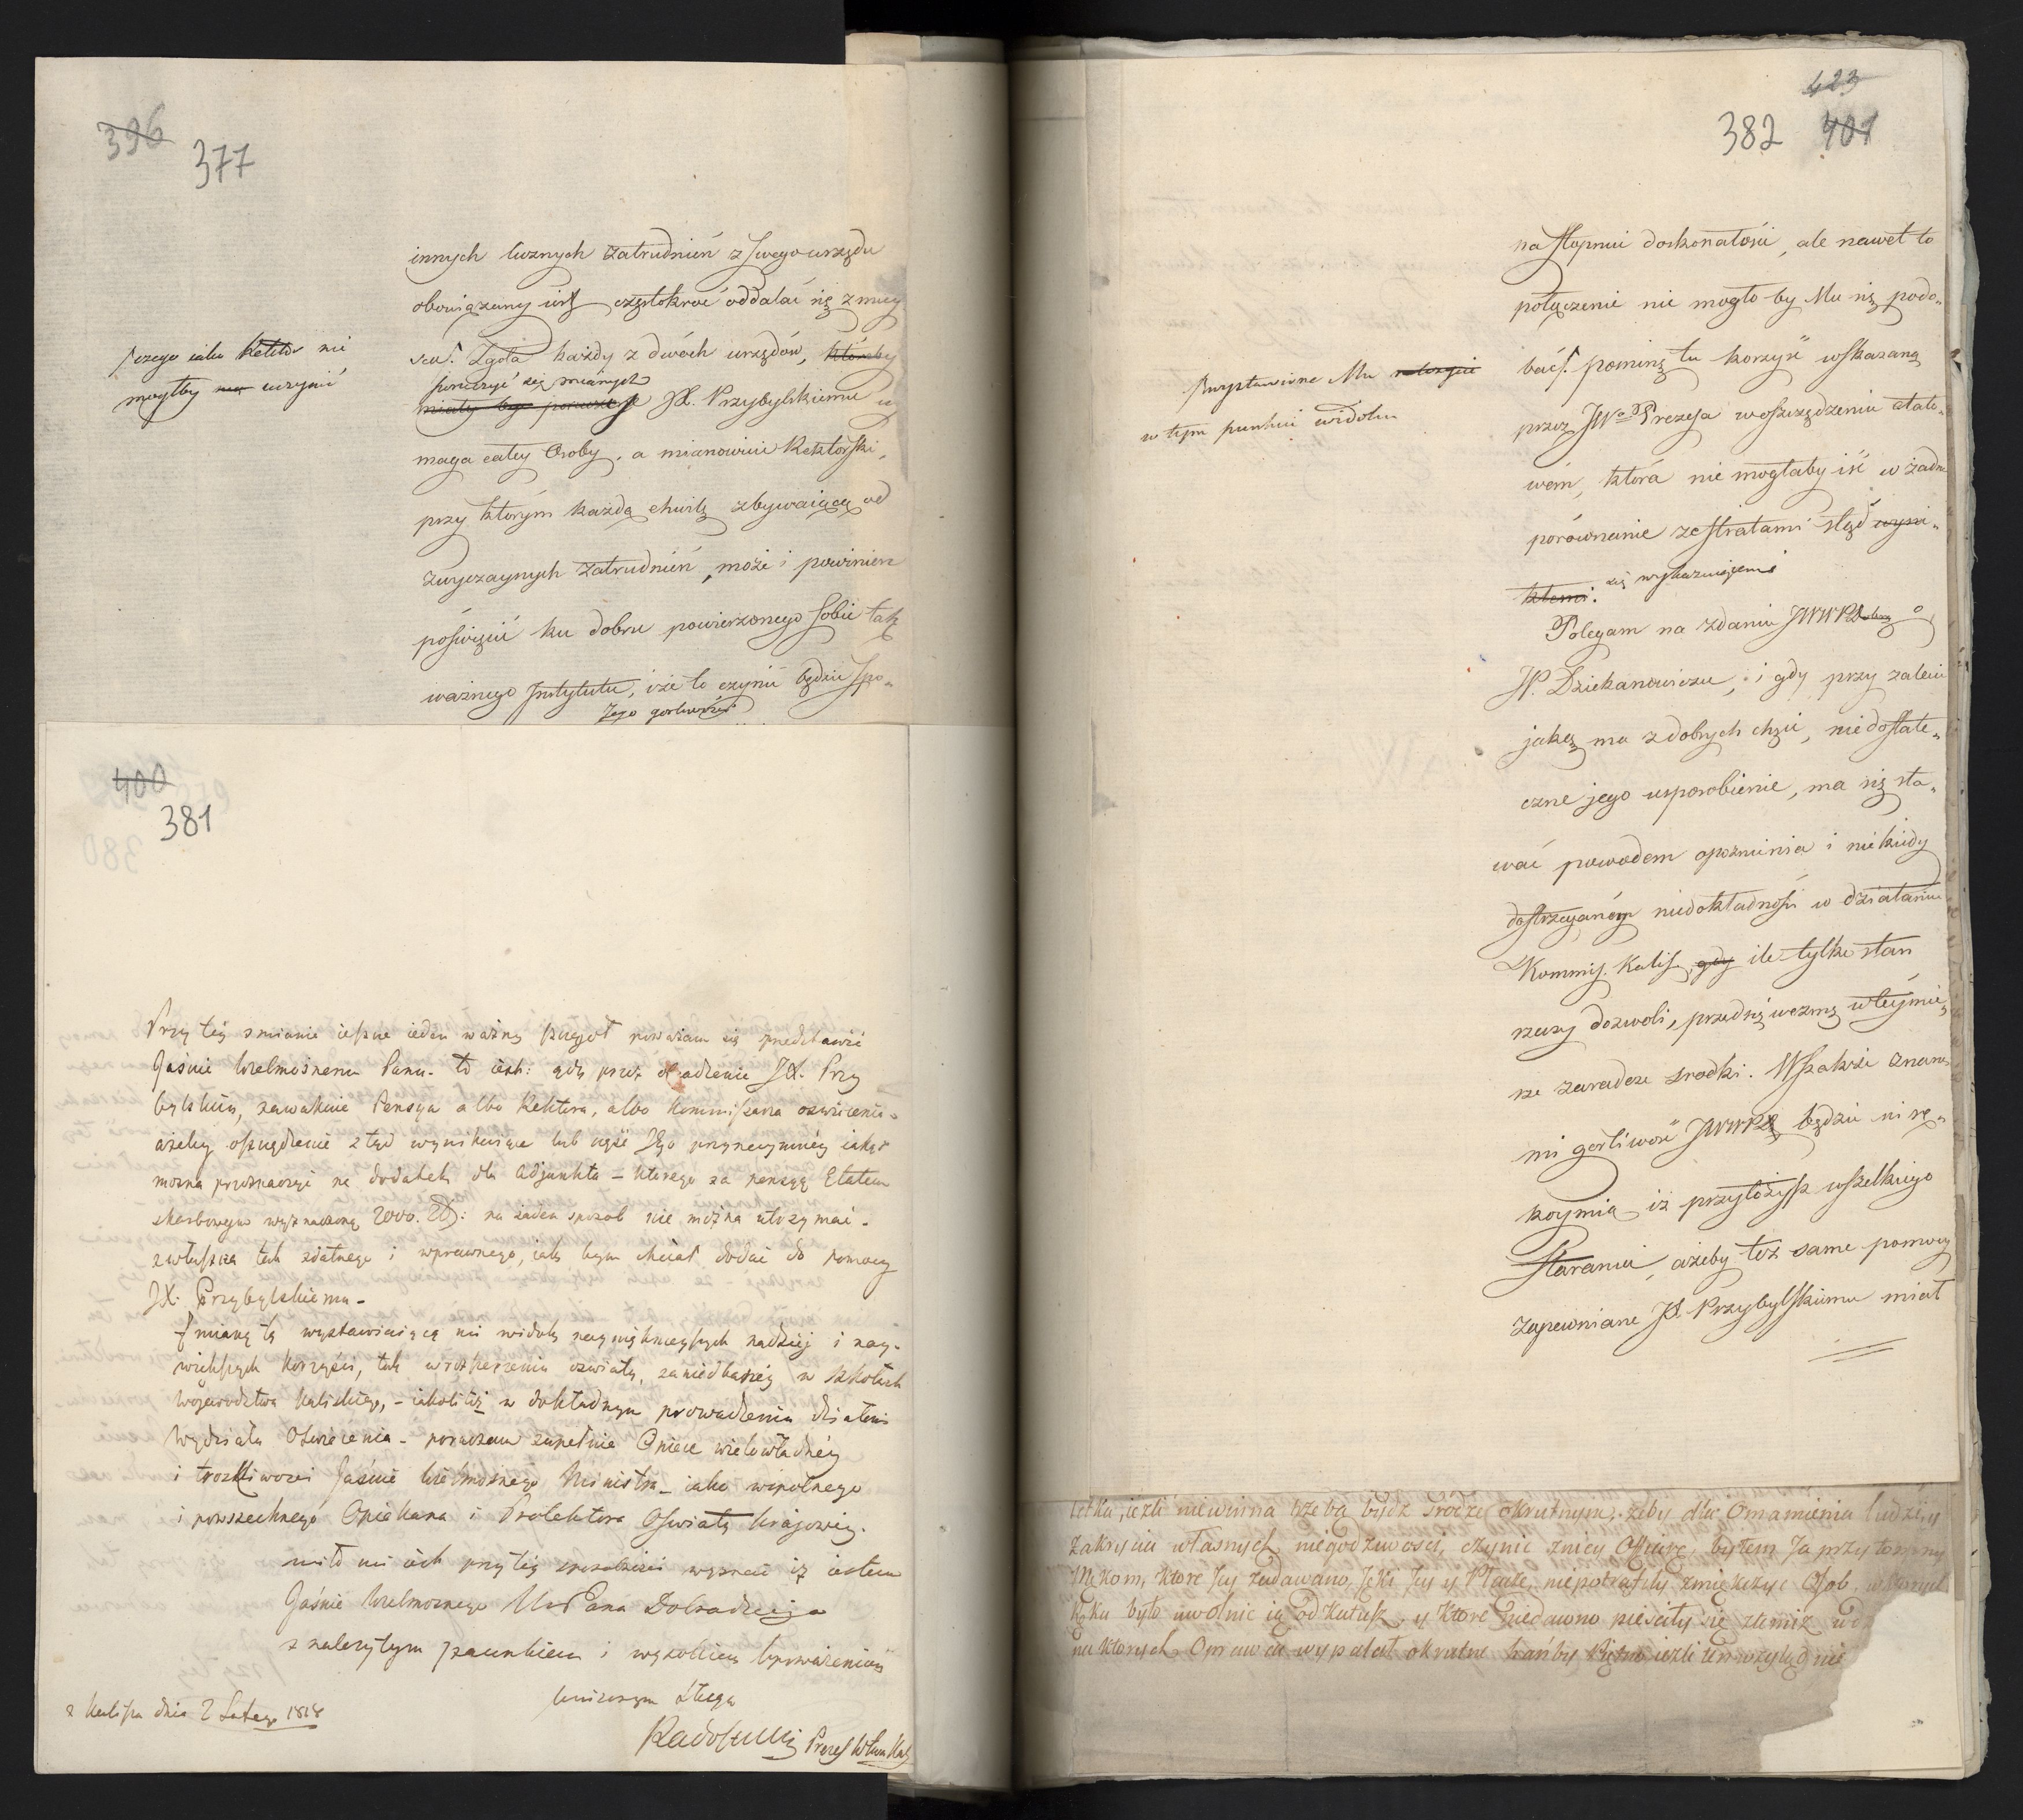 396
377
innych licznych zatrudnień z swego urzędu
obowiązany iest częstokroć oddalać się z miey
sca. Zgoła każdy z dwóch urzędów, któreby
/czego iako Rektor nie
mogłby uczynić
miały być
JX. Przybylskiemu
maga całey Osoby, a mianowicie Rektorski,
przy którym każdą chwilę zbywaiącą od
zwyczaynych zatrudnień, może i powinien
poświęcić ku dobru powierzonego sobie tak
ważnego Instytutu, iże to czynić będzie spo-
Jego gorliwość
400
381
Przy tey zmianie ieszcze ieden ważny szczegół poważam się przedstawić
Jaśnie Wielmożnemu Panu. to iest: gdy przez osadzenie JX. Przy
bylskiego, zawakuie Pensya albo Rektora, albo Kommissarza oswiecenia.
ażeby oszczędzenie ztąd wynikaiące lub część Jego przynaymniey iakąś
można przeznaczyć na dodatek dla Adjunkta - którego za pensyą Etatem
skarbowym wyznaczoną 2000. Zł: na żaden sposób nie można utrzymać.
zwłaszcza tak zdatnego i wprawnego, iaki bym chciał dodać do pomocy
JX. Przybylskiemu.
Zmianę tę wystawiaiącą mi widoki naypięknieyszych nadziej i nay-
większych korzyści, tak w rozszerzeniu oswiaty, zaniedbaney w szkołach
Województwa Kaliskiego, - iakoli też w dokładnym prowadzeniu działań
Wydziału Oswiecenia - poruczam zupełnie Opiece wielowładnéy
i troskliwości Jaśnie Wielmożnego Ministra - iako wspólnego
i powszechnego Opiekuna i Protektora Oswiaty krajowey.
miło mi iest przy tey sposobności wyznać iż iestem
Jaśnie Wielmożnego Mw Pana Dobrodzieja
z należytym szacunkiem i wysokiem Upoważeniem
Uniżonym Sługą
z Kalisza dnia 2 Lutego 1818
Radoszewski Prezes
423
382 401
na stopniu doskonałości, ale nawet to
połączenie nie mogło by Mu się podo-
bać/. pominę tu korzyść wskazaną
/wystawione Mu
w tym punkcie widoku
przez JWo Prezesa w oszczędzeniu etato-
wém, która nie mogłaby iść w żadne
porównanie ze stratami stąd wyni-
kłemi. się wykazuiącemi
Polegam na zdaniu JWWPDobrgo
JP. Dziekanowiczu, i gdy przy zalecie
jaką ma z dobrych chęci, niedostate-
czne jego usposobienie, ma się sta-
wać powodem opoznienia i niekiedy
dostrzeganéy niedokładności w działaniu
Kommis. Kalis. gdy ile tylko stan
rzeczy dozwoli, przedsięwezmę w téy mie-
rze zaradcze srodki. Wszakże znana
mi gorliwość JWWPD będzie mi rę-
koymią iż przyłożysz wszelkiego
starania, ażeby też same pomocy
zapewniane JX. Przybylskiemu miał
letka, ieżli niewinna trzeba bydź srodze okrutnym, żeby dla Omamienia ludzi, y
zakrycia własnych niegodziwosci, czynić z niey Offiarę, byłem Ja przytomny
Mękom, ktore Jey zadawano, Jęki Jey y Płacze, niepotrafiły zmiękczyć Osob, w ktorych
Ręku było uwolnić ią od Katusz, y ktore niedawno pieściły się z temiż
na ktorych Oprawca wypalał okrutne hańby Piętno ieżli ten wzgląd nie